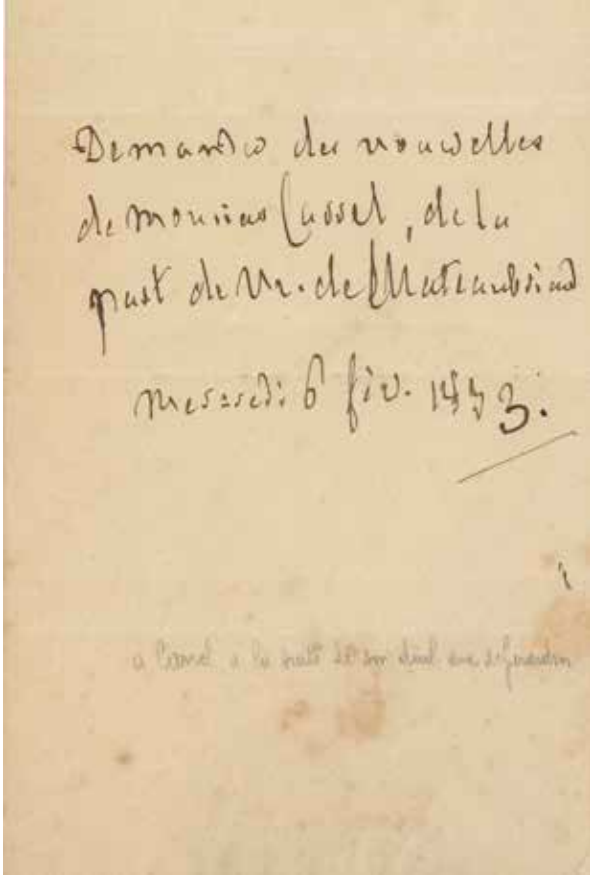 Demander des nouvelles
de monsieur Carrel, de la
part de Mr. de Chateaubriand
mercredi 6 fév. 1833.
a Carrel a la suite de son duel avec Girardin